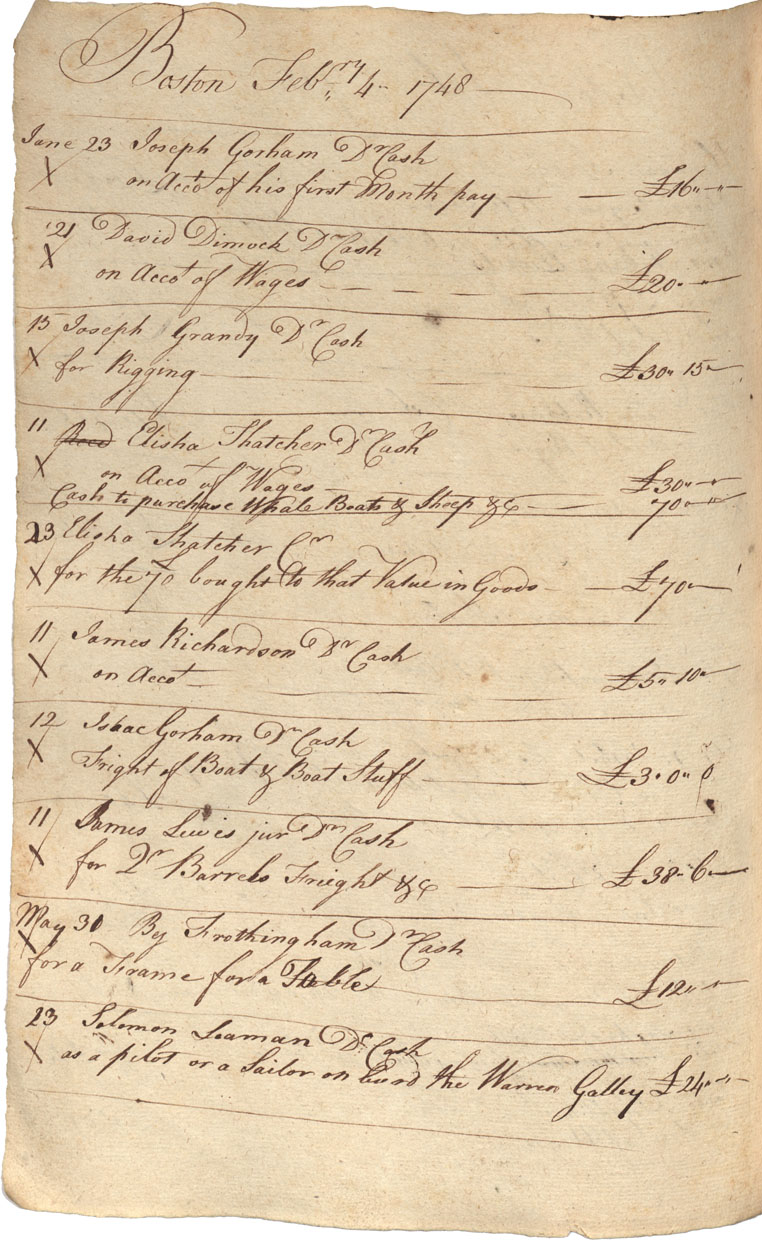 Boston Febry 4 1748
June 23 Joseph Gorham Dr Cash
X on Acco of his first Month pay — £16 " "
21 David Dimock Dr Cash
X on Accot of Wages — £20 "
15 Joseph Grandy Dr Cash
X for Rigging — £30 " 15 "
11 Elisha Thatcher Dr Cash
X on Acco of Wages — £30 " "
Cash to purchase Whale Boats & Sheep &c — 70 "
23 Elisha Thatcher Cr
X for the 70 bought to that Value in Goods — £70
11 James Richardson Dr Cash
X on Accot — £5 " 10 "
12 Isaac Gorham Dr Cash
X Fright of Boat & Boat Stuff — £3 " 0 " 0
11 James Lewis jur Dr Cash
X for Qr Barrels Freight &c — £38 " 6
May 30 By Frothingham Dr Cash
X for a Frame for a Table £12 " "
23 Solomon Leaman Dr Cash
X as a pilot or a Sailor on board the Warren Galley £24 " "